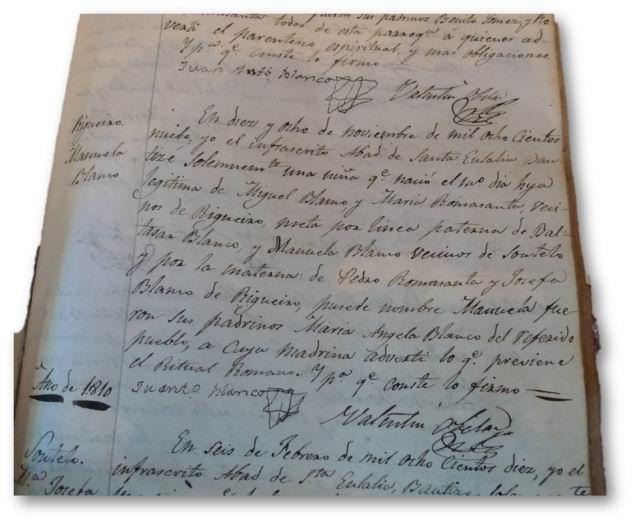 fueron sus padrinos Benito Gomez, y Ro
todos de esta parroqa. a quienes ad-
verti el parentesco espiritual, y mas obligaciones.
Y pa. qe. conste lo firmo
Juan Anto. Blanco
Valentin
En diez y ocho de noviembre de mil ocho Cientos
Rigueiro. nuebe, yo el infrascrito Abad de Santa Eulalia Bau-
Manuela tize Solemnemte. una niña qe. nació el mo. dia hija
Blanco legitima de Miguel Blanco y Maria Romasanta, veci-
nos de Rigueiro, nieta por linea paterna de Bal-
tasar Blanco, y Manuela Blanco vecinos de Soutelo
y por la materna: de Pedro Romasanta y Josefa
Blanco de Rigueiro, pusele nombre Manuela fue-
ron sus padrinos Maria Angela Blanco del referido
pueblo, a cuya madrina adverti lo qe. previene
el Ritual Romano. Y pa. qe. conste lo firmo
Año de 1810 Juanto Blanco
Valentin
En seis de Febrero de mil ocho Cientos diez, yo el
Soutelo. infrascrito Abad de Sta. Eulalia, Bautize
Josefa